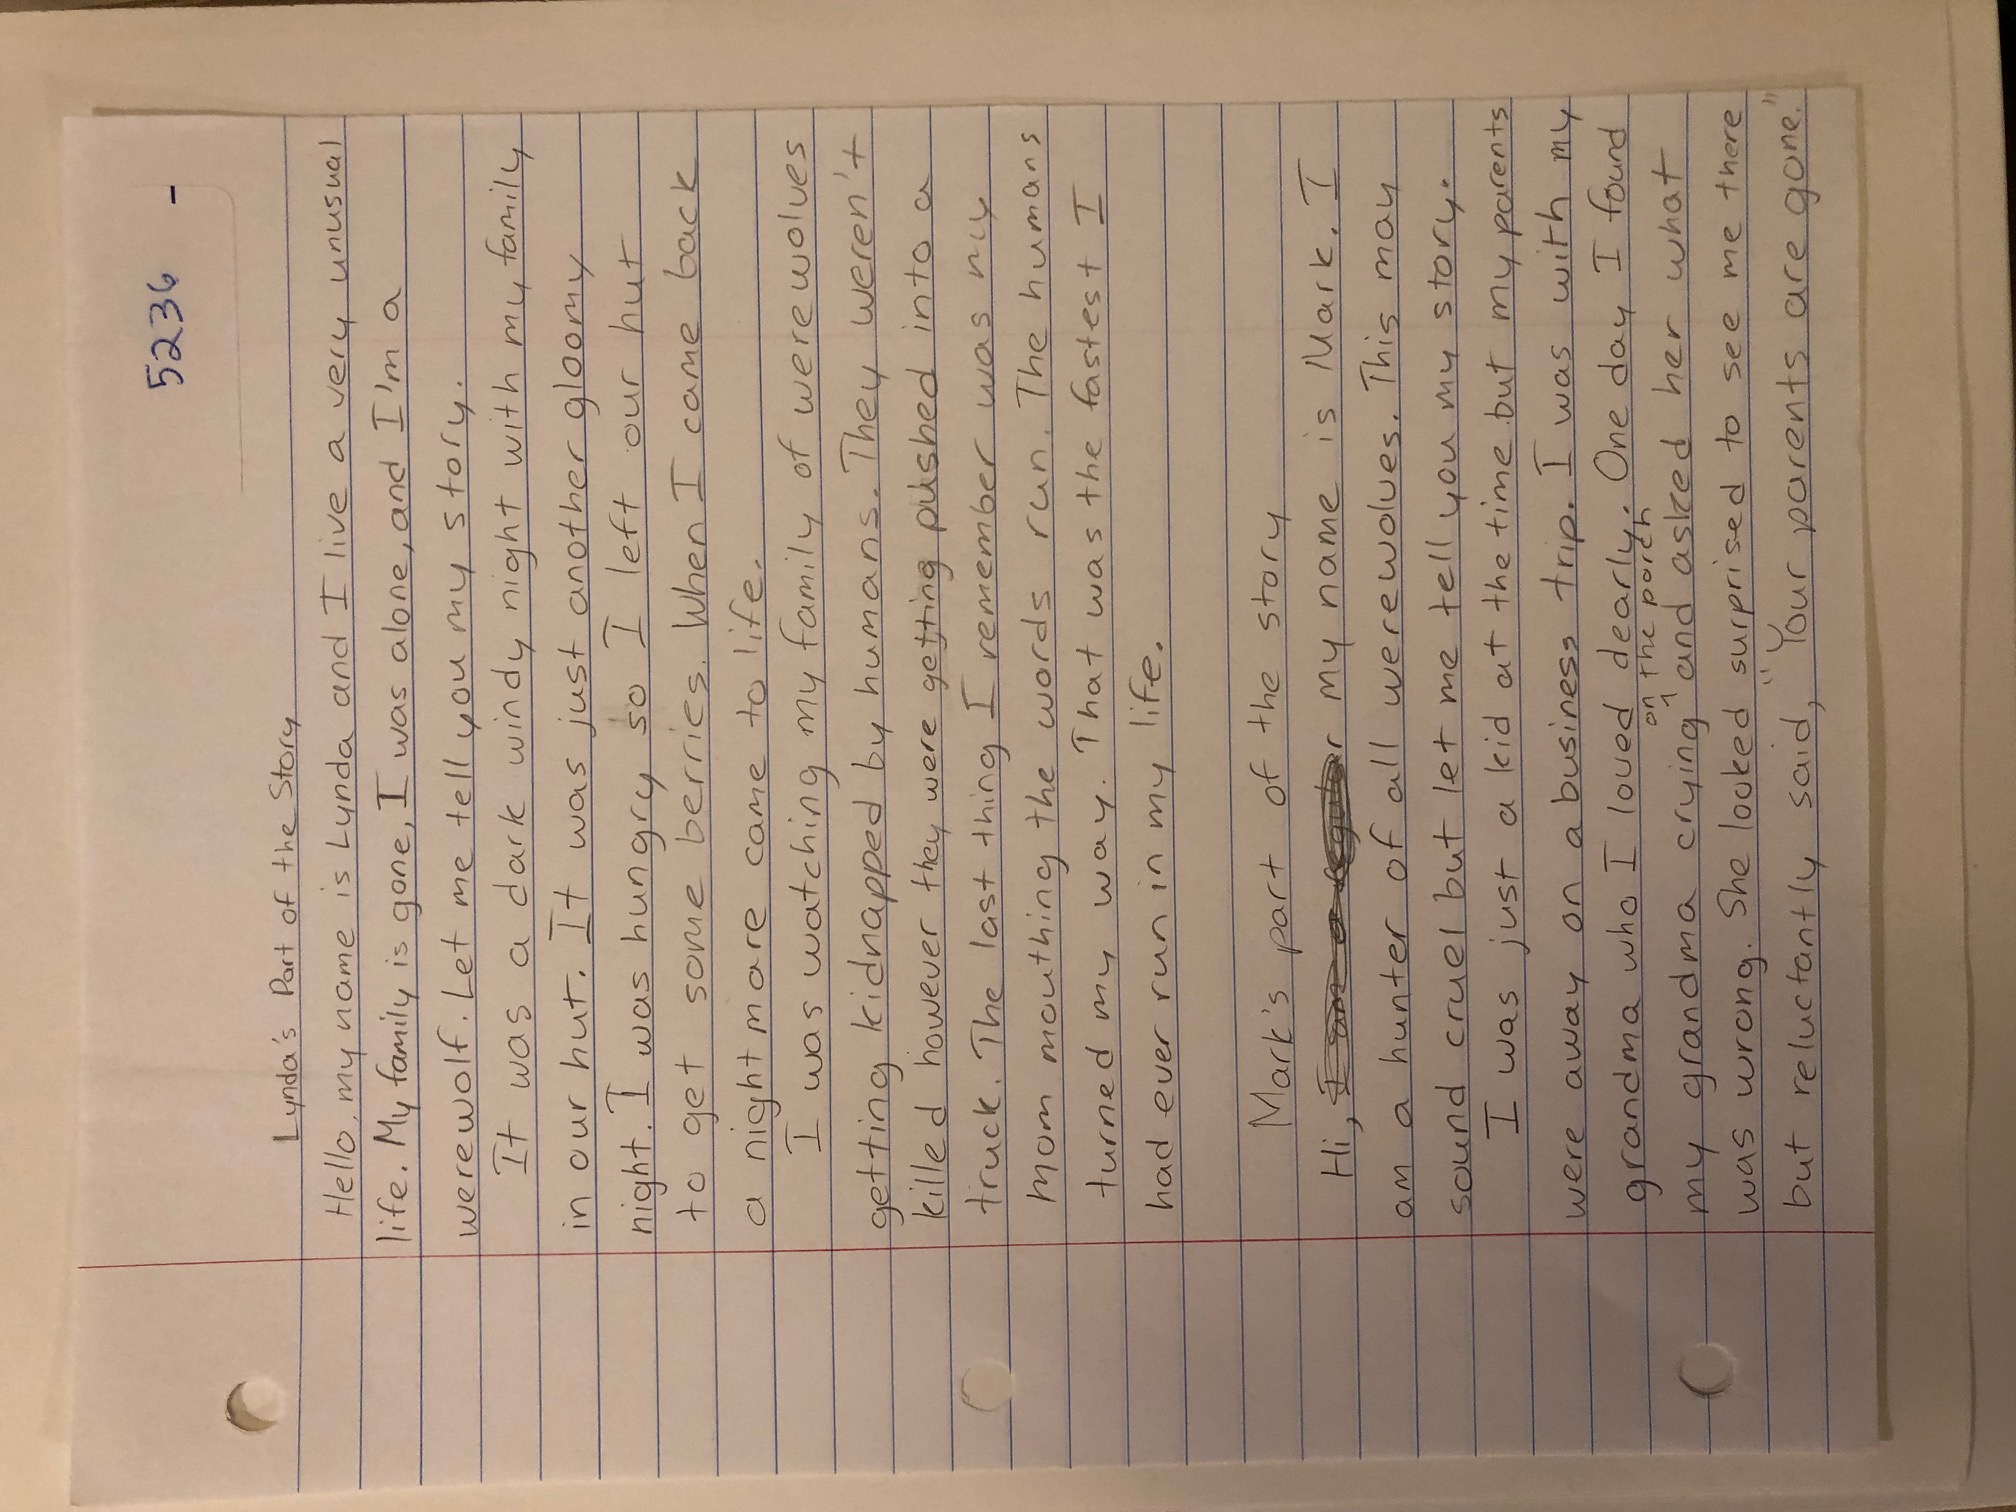 5236 -
Lynda's Part of the Story
Hello, my name is Lynda and I live a very unusual
life. My family is gone, I was alone, and I'm a
werewolf. Let me tell you my story.
It was a dark windy night with my family
in our hut. It was just another gloomy
night. I was hungry so I left our hut
to get some berries. When I came back
a nightmare came to life.
I was watching my family of werewolves
getting kidnapped by humans. They weren't
killed however they were getting pushed into a
truck. The last thing I remember was my
mom mouthing the words run. The humans
turned my way. That was the fastest I
had ever run in my life.
Mark's part of the story
Hi, I am a regular my name is Mark. I
am a hunter of all werewolves. This may
sound cruel but let me tell you my story.
I was just a kid at the time but my parents
were away on a business trip. I was with my
grandma who I loved dearly. One day I found
on the porch
my grandma crying ^ and asked her what
was wrong. She looked surprised to see me there
but reluctantly said, "Your parents are gone."